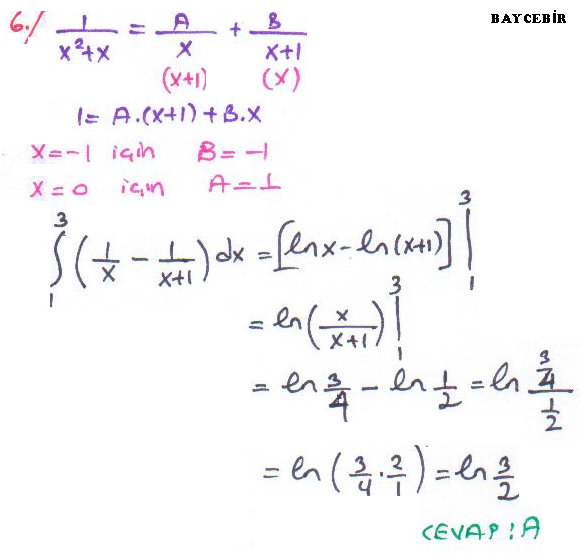 BAYCEBİR
6./ 1/(x²+x) = A/x + B/(x+1)
(x+1) (x)
1 = A.(x+1) + B.x
x = -1 için B = -1
x = 0 için A = 1
∫₁³ (1/x - 1/(x+1)) dx = [ln x - ln (x+1)] |₁³
= ln (x/(x+1)) |₁³
= ln 3/4 - ln 1/2 = ln (3/4)/(1/2)
= ln (3/4 . 2/1) = ln 3/2
CEVAP : A